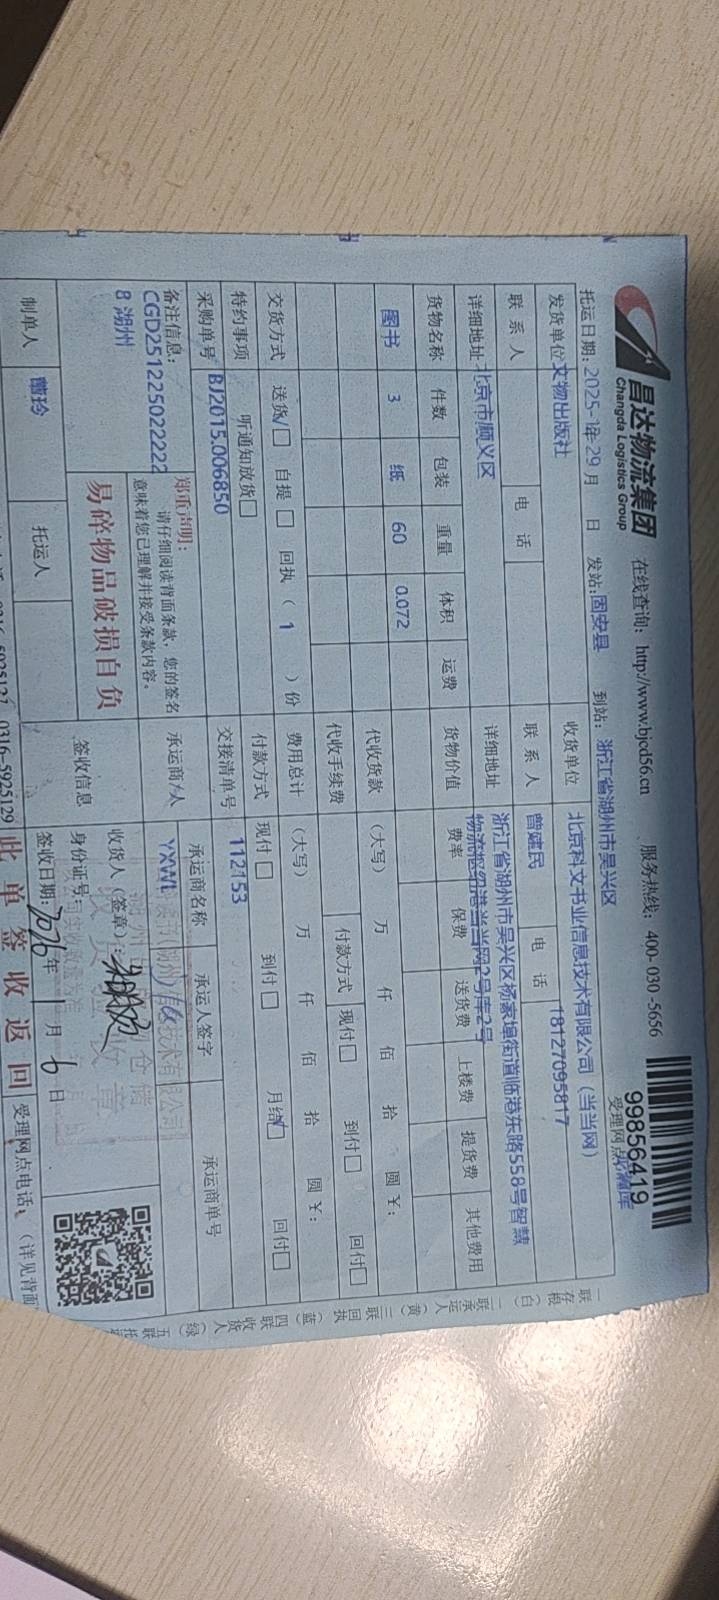 昌达物流集团
Changda Logistics Group
在线查询: http://www.bjcd56.cn
服务热线: 400-030-5656
99856419
托运日期: 2025-1年29月 日
发站: 固安县
到站: 浙江省湖州市吴兴区
受理网点
发货单位 文物出版社
收货单位 北京科文书业信息技术有限公司（当当网）
联系人 电话
联系人 曾健民 电话 18127095817
详细地址 北京市顺义区
详细地址 浙江省湖州市吴兴区杨家埠街道临港东路558号智慧
物流枢纽港当当网2号库2号
货物名称 件数 包装 重量 体积 运费 货物价值 费率 保费 送货费 上楼费 提货费 其他费用
图书 3 纸 60 0.072
代收货款 (大写) 万 仟 佰 拾 圆 ¥:
代收手续费 付款方式 现付□ 到付□ 回付□
费用总计 (大写) 万 仟 佰 拾 圆 ¥:
交货方式 送货√□ 自提□ 回执（ 1 ）份
付款方式 现付□ 到付□ 月结√□ 回付□
特约事项 听通知放货□
采购单号 BJ2015.006850
交接清单号 112153
备注信息:
CGD251225022222
8 湖州
郑重声明:
请仔细阅读背面条款, 您的签名
意味着您已理解并接受条款内容。
易碎物品破损自负
承运商/人 承运商名称 承运人签字 承运商单号
YXWL
签收信息
收货人（签章）:
身份证号:
签收日期: 2026年 1月 6日
制单人
托运人
0316-5925129
此单签收返回
受理网点电话:（详见背面
一联存根（白）
二联承运人（黄）
三联回执（蓝）
四联收货人（绿）
五联托运